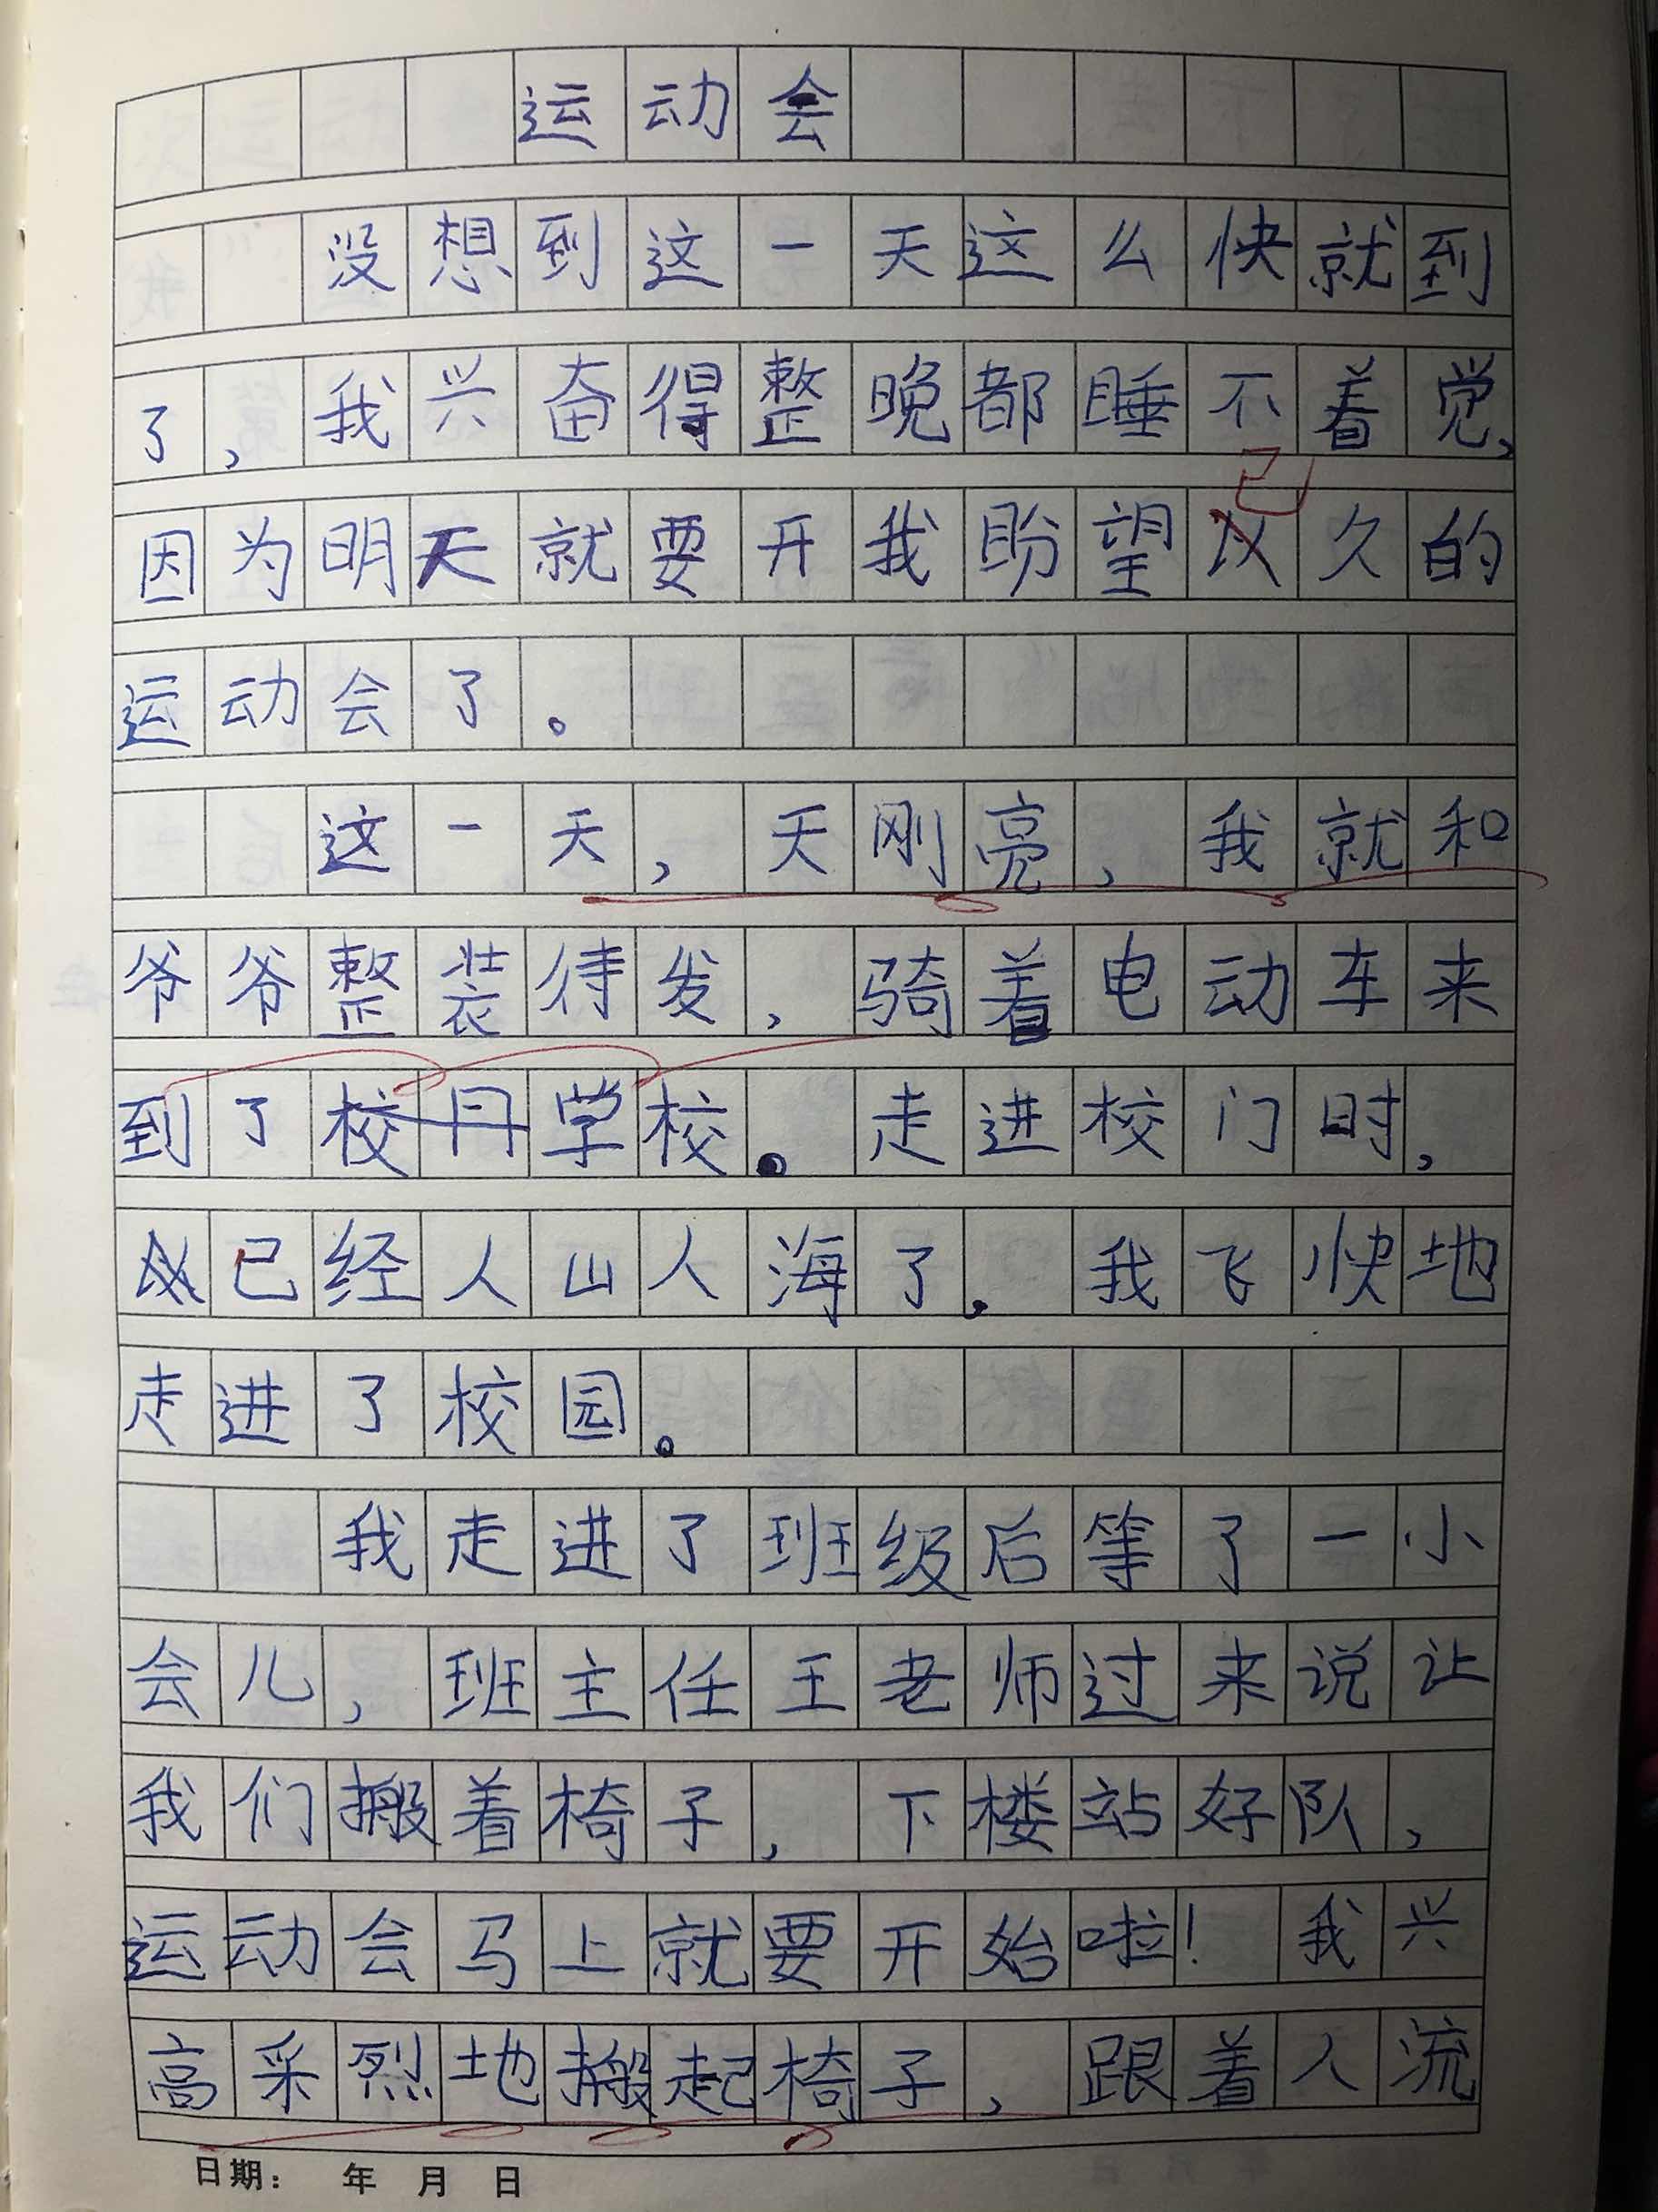 运动会
没想到这一天这么快就到
了，我兴奋得整晚都睡不着觉，
已
因为明天就要开我盼望以久的
运动会了。
这一天，天刚亮，我就和
爷爷整装待发，骑着电动车来
到了学校。走进校门时，
已经人山人海了。我飞快地
走进了校园。
我走进了班级后等了一小
会儿，班主任王老师过来说让
我们搬着椅子，下楼站好队，
运动会马上就要开始啦！我兴
高采烈地搬起椅子，跟着人流
日期： 年 月 日